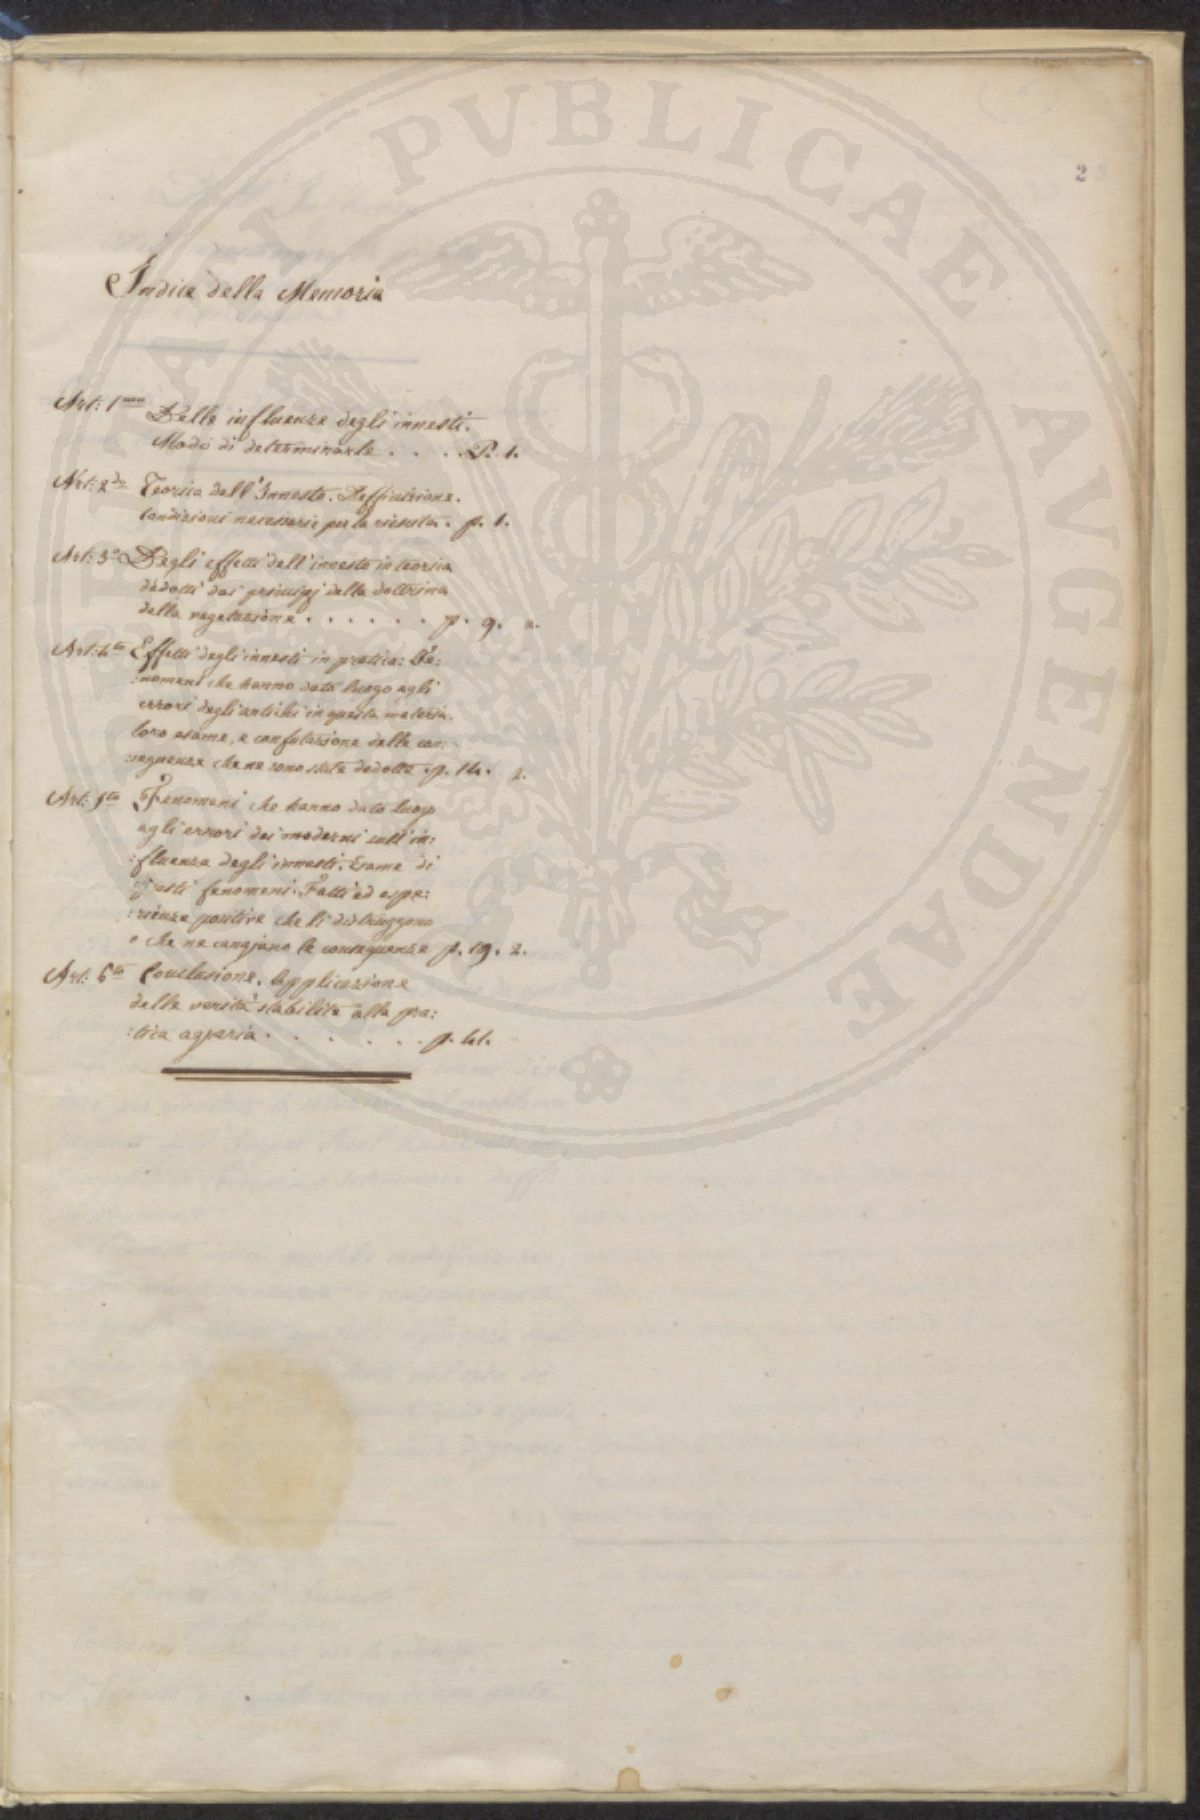 PROSPERITATI PVBLICAE AVGENDAE
2
Indice della Memoria
Art: 1mo Delle influenze degli innesti.
Modo di determinarle . . . . P. 1.
Art: 2do Teorica dell'Innesto. Deffinizione.
Condizioni necessarie per la riescita. p. 1.
Art: 3o Degli effetti dell'innesto in teorica
dedotti dai principj della dottrina
della vegetazione . . . . . . p. 9. 2.
Art: 4to Effetti degli innesti in pratica: Fe:
:nomeni che hanno dato luogo agli
errori degli antichi in questa materia.
loro esame, e confutazione delle con:
:seguenze che ne sono state dedotte . p. 14. 2.
Art: 5to Fenomeni che hanno dato luogo
agli errori dei moderni sull'in:
:fluenza degli innesti. Esame di
questi fenomeni. Fatti ed espe:
:rienze positive che li distruggono
o che ne cangiano le conseguenze p. 19. 2.
Art: 6to Conclusione. Applicazione
delle verità stabilite alla pra:
:tica agraria . . . . . . p. 41.